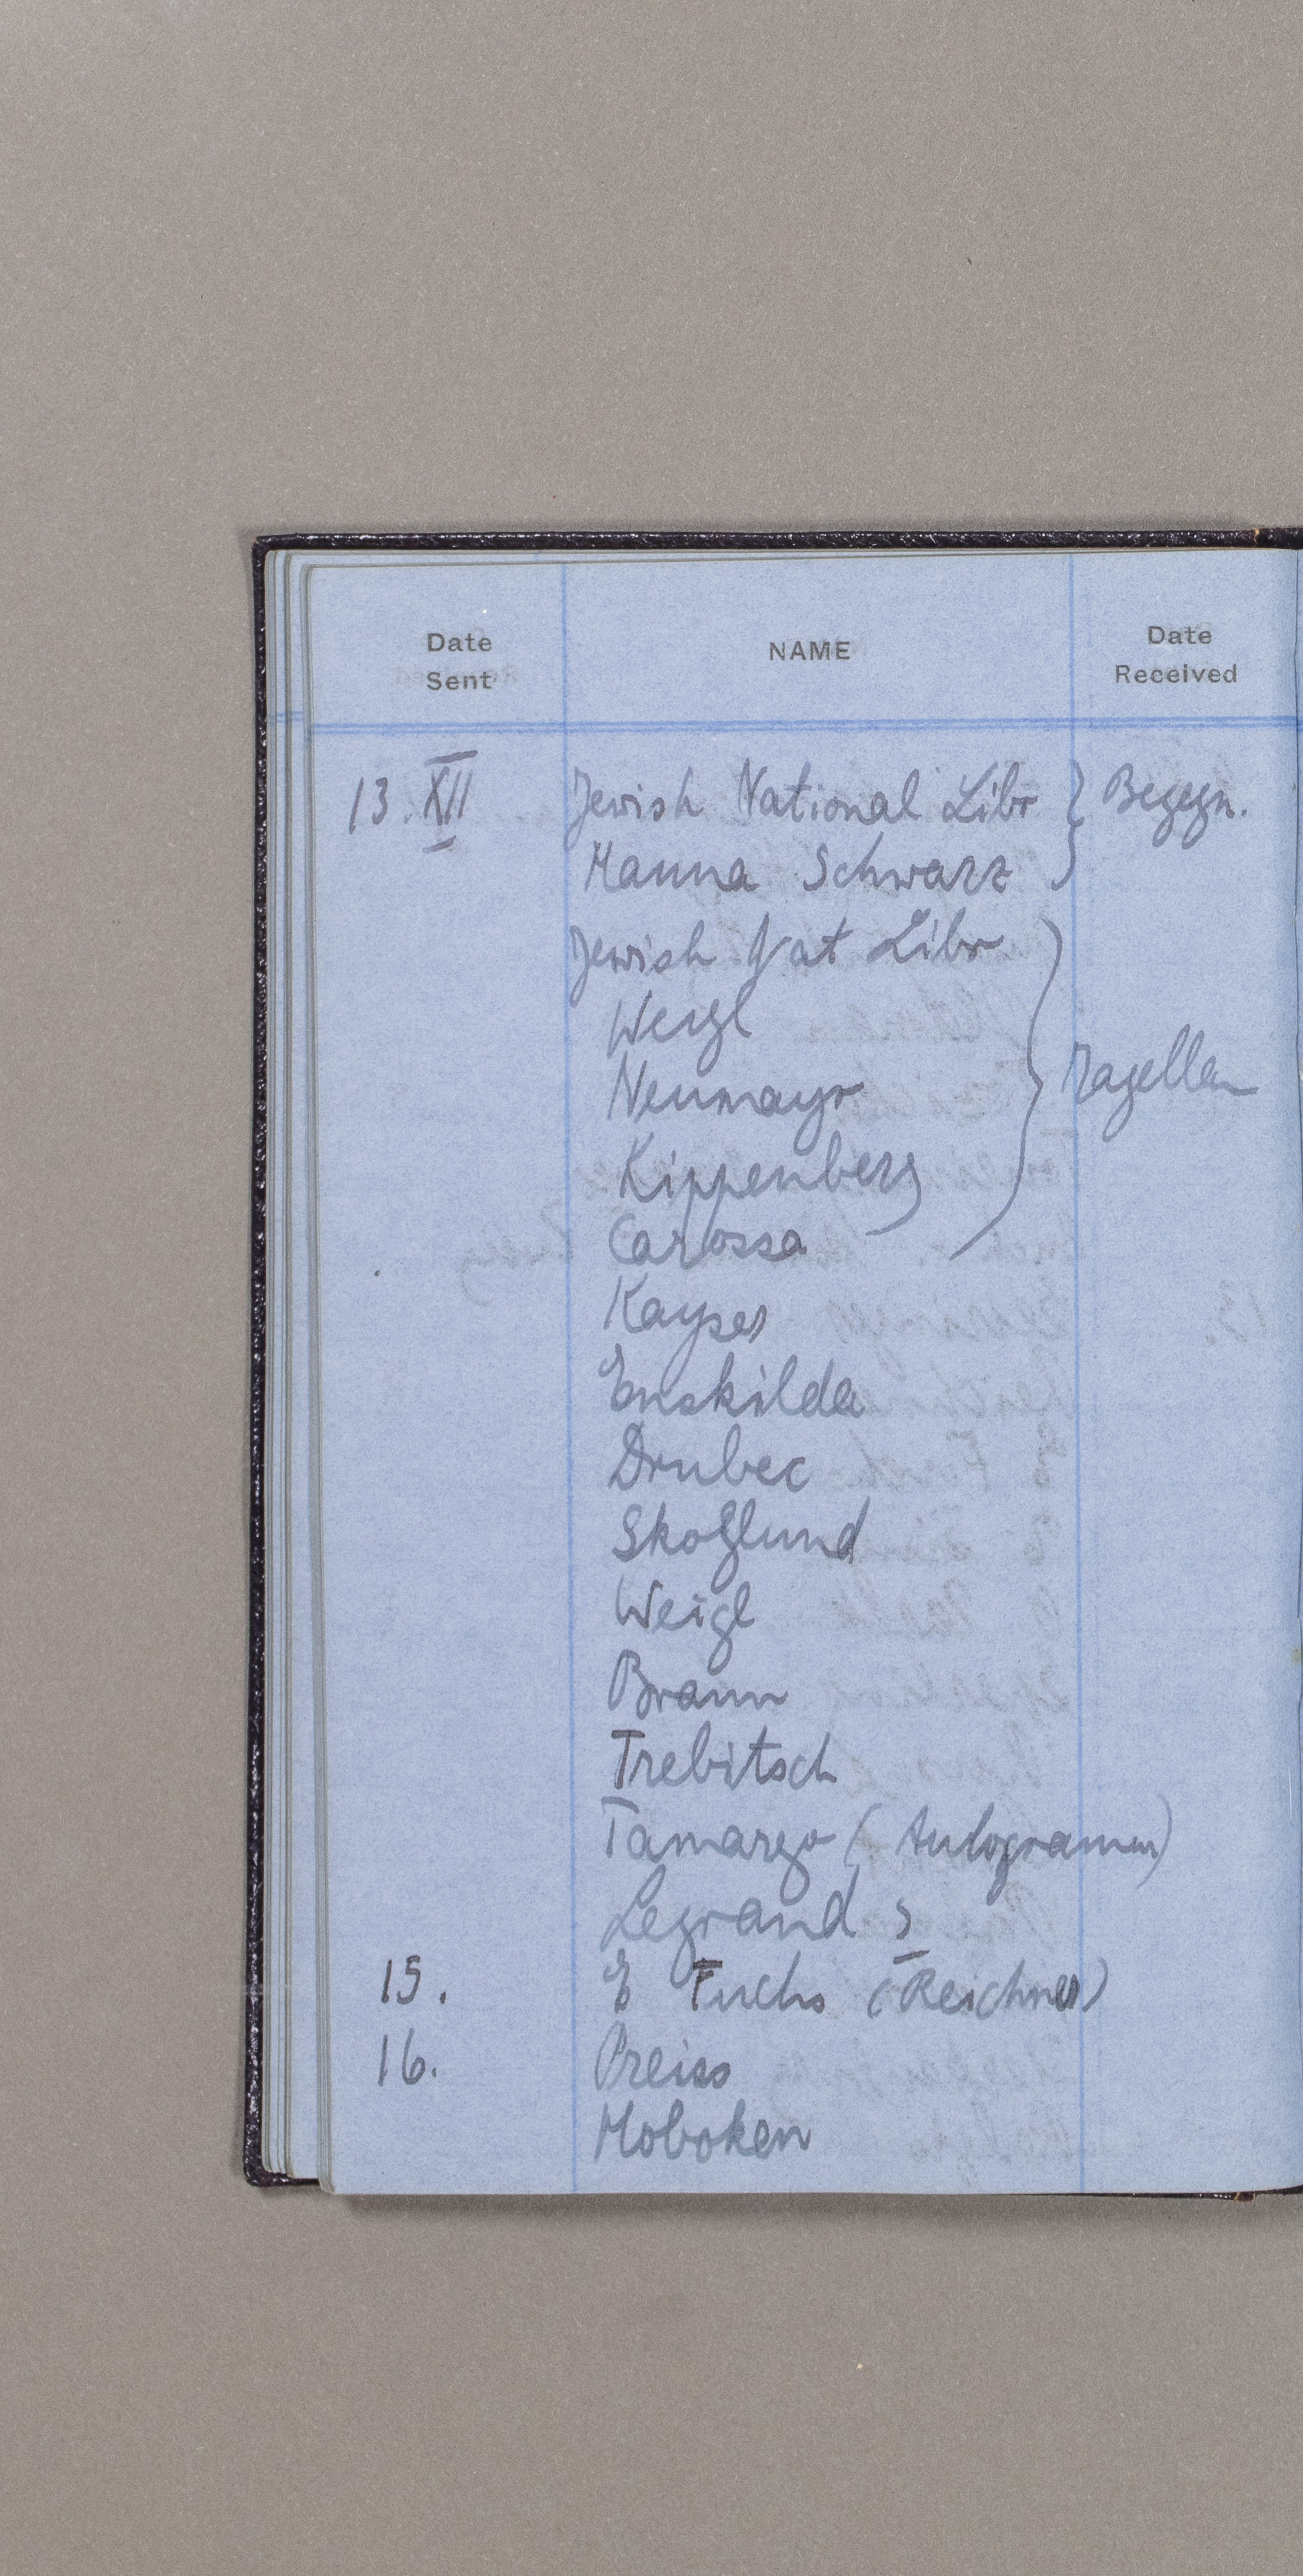 Date Sent NAME Date Received
13. XII Jewish National Libr } Begegn.
Hanna Schwarz
Jewish Nat Libr
Weigl
Neumayr } Magellan
Kippenberg
Carossa
Kayser
Enskilda
Drubec
Skoglund
Weigl
Braun
Trebitsch
Tamargo (Autogramm)
Legrand
15. E Fuchs (Reichner)
16. Preiss
Hoboken